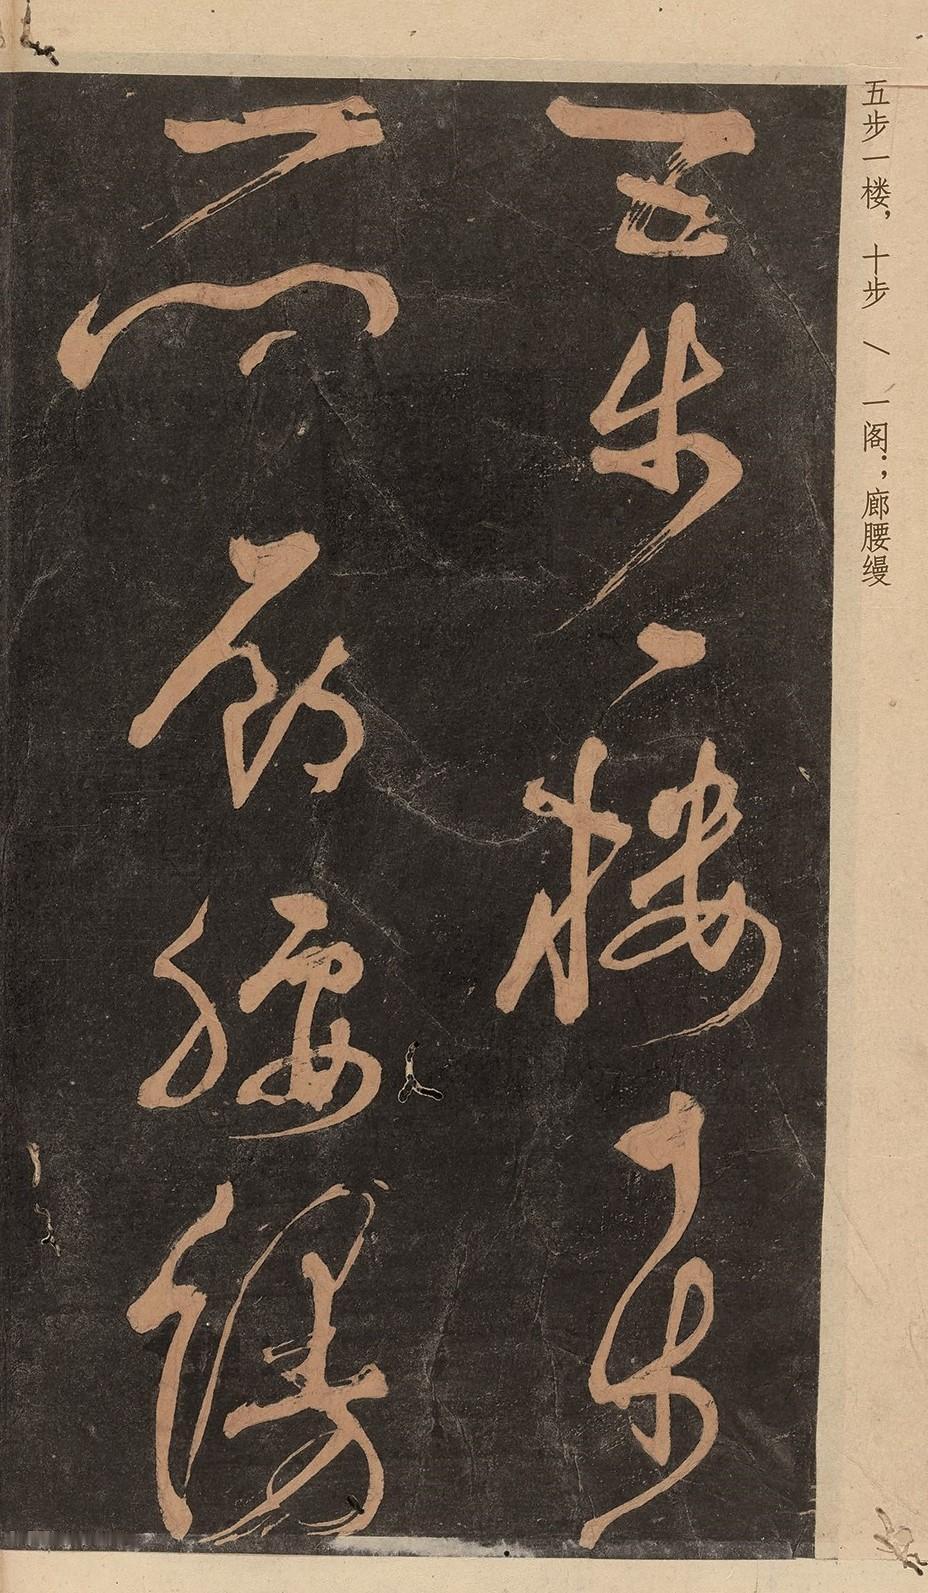 五步一楼，十步 \ 一阁；廊腰缦
五步一樓十步
一閣廊腰縵